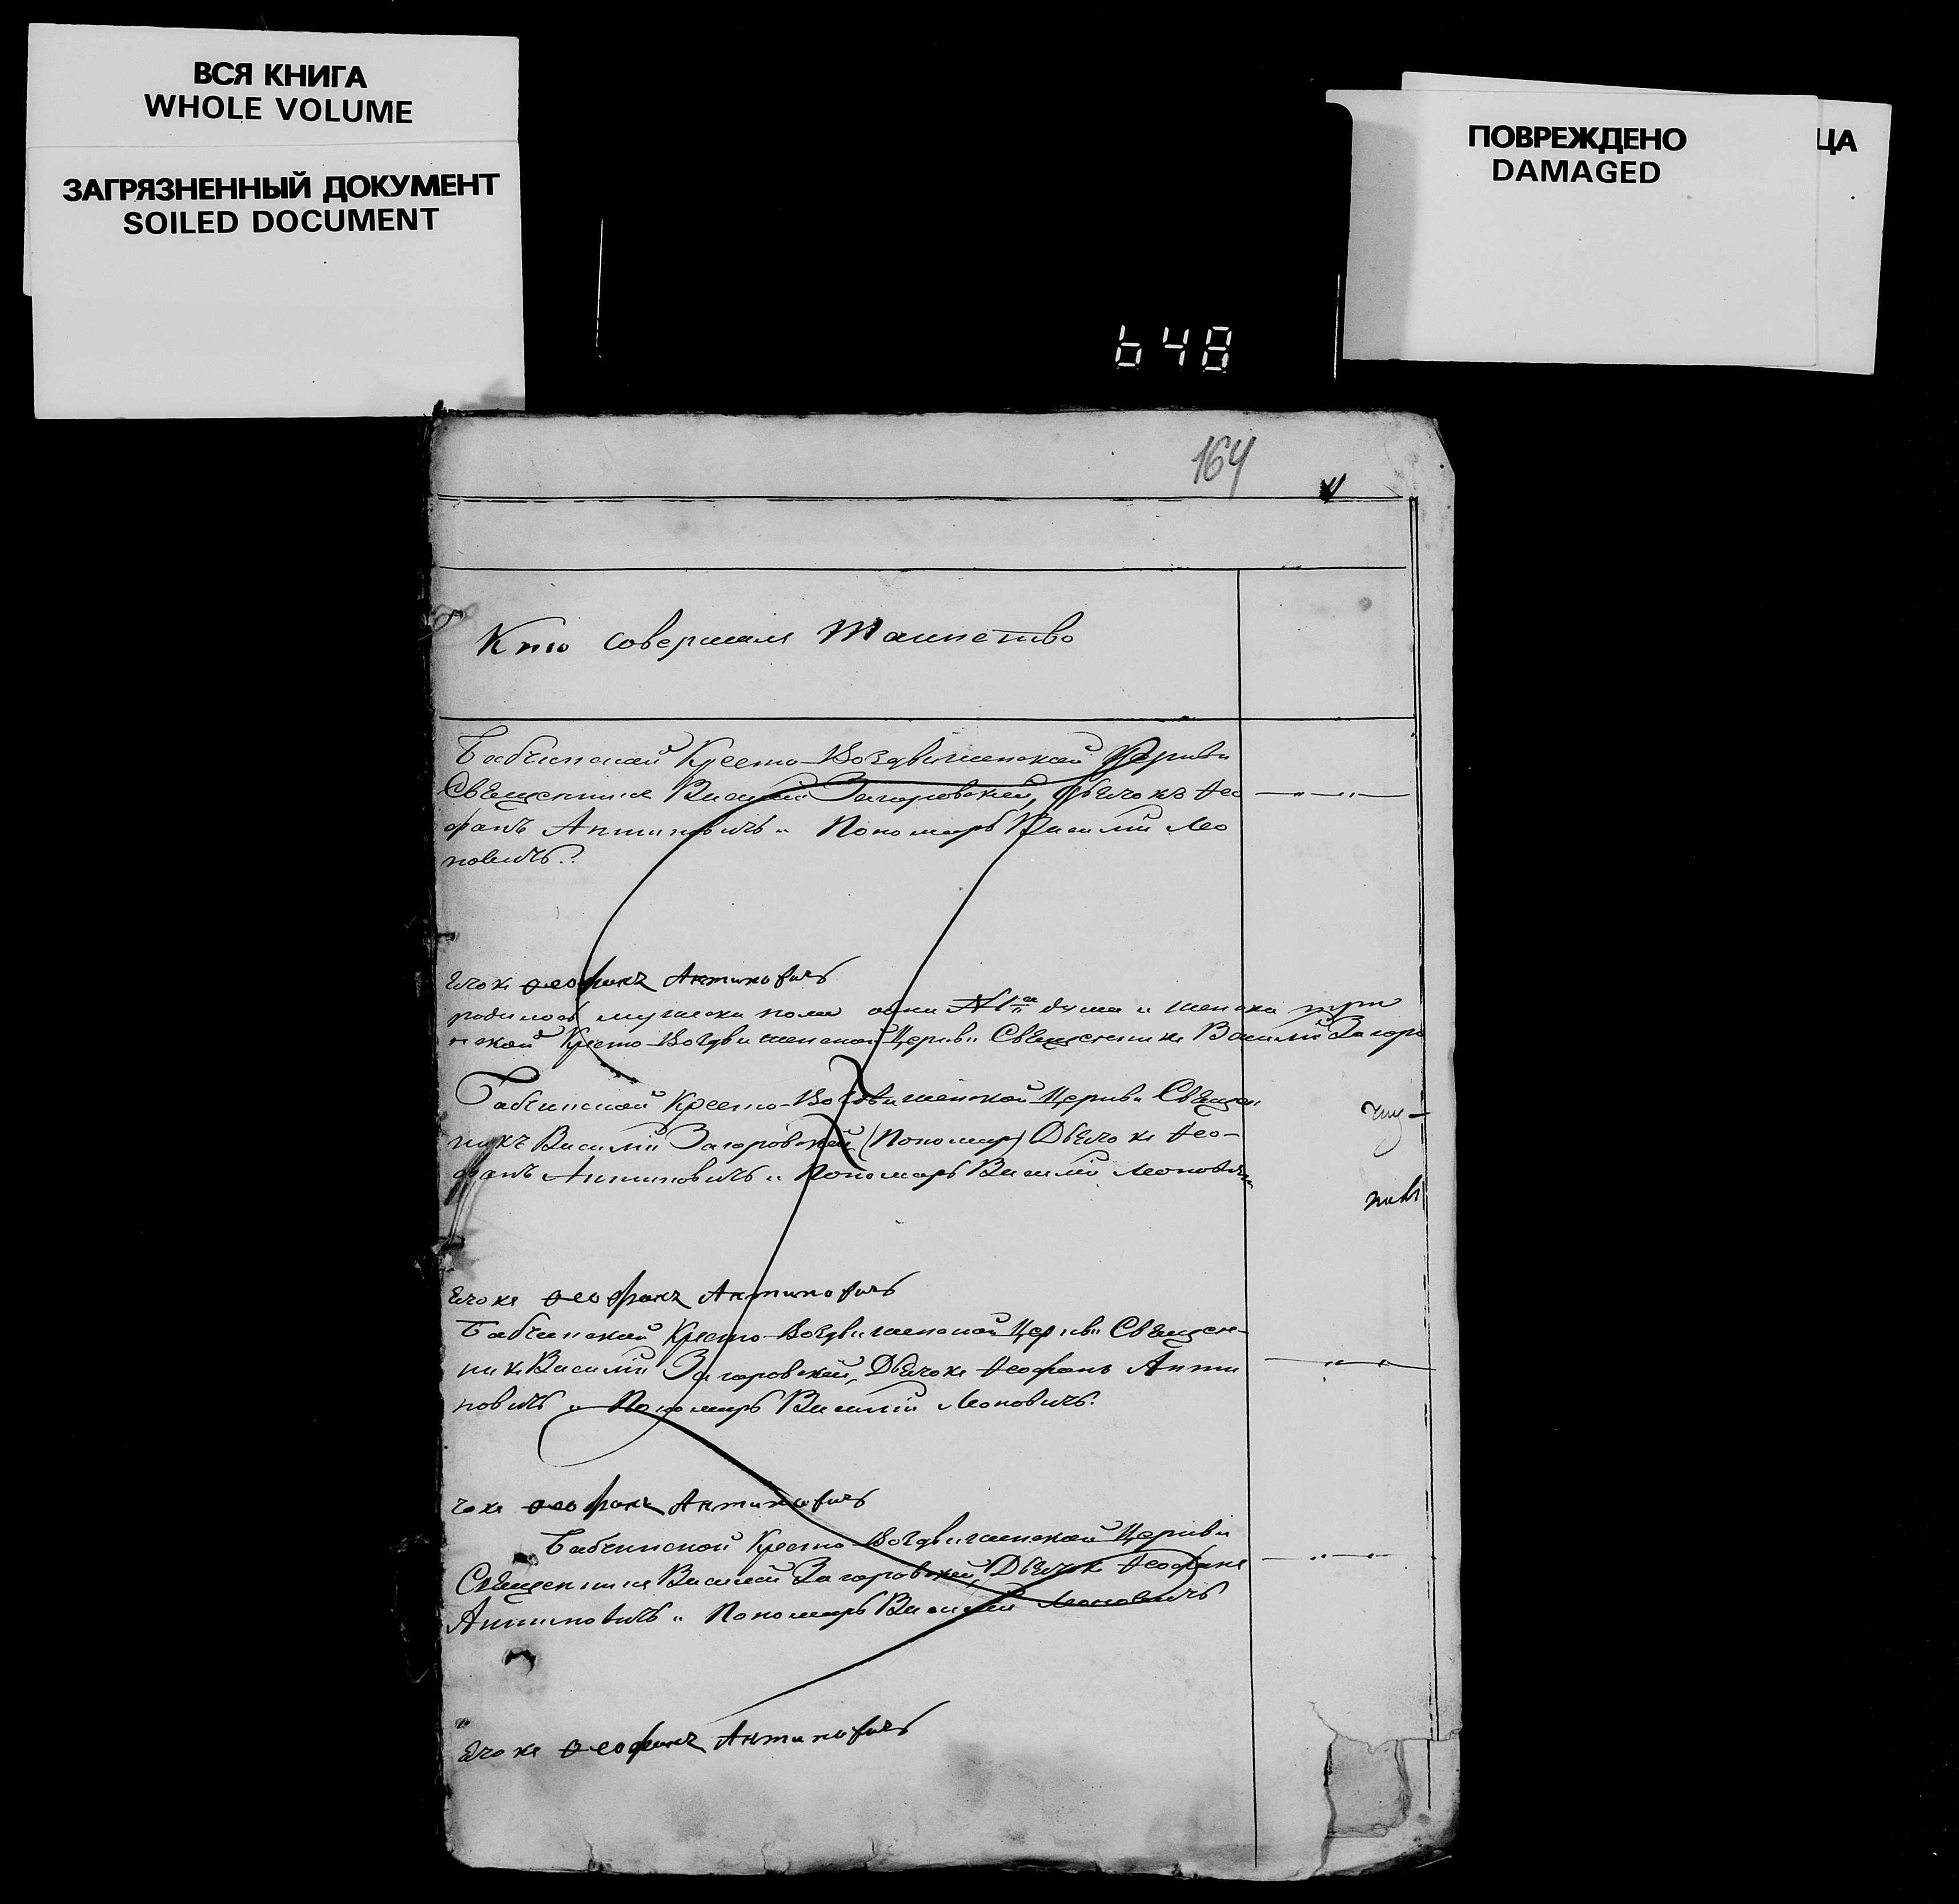 ВСЯ КНИГА
WHOLE VOLUME
ЗАГРЯЗНЕННЫЙ ДОКУМЕНТ
SOILED DOCUMENT
ПОВРЕЖДЕНО
DAMAGED
ЦА
648
164
Кто совершалъ Таинство
Бабчинской Кресто-Воздвиженской Церкви
Священникъ Василій Загоровскій, Дьячокъ Ѳео
фанъ Антиповичъ и Пономарь Василій Леоновичъ
ячокъ Ѳеофанъ Антиповичъ
родилось мужеска пола одна №1я душа и женска три
нской Кресто-Воздвиженской Церкви Священникъ Василій Загоро
Бабчинской Кресто-Воздвиженской Церкви Священ
никъ Василій Загоровскій, (Пономар) Дьячокъ Ѳео-
фанъ Антиповичъ и Пономарь Василій Леонович
ячокъ Ѳеофанъ Антиповичъ
Бабчинской Кресто-Воздвиженской Церкви Священ-
никъ Василій Загоровскій, Дьячокъ Ѳеофанъ Анти
повичъ и Пономарь Василій Леоновичъ.
чокъ Ѳеофанъ Антиповичъ
Бабчинской Кресто-Воздвиженской Церкви
Священникъ Василій Загоровскій, Дьячок Ѳеофанъ
Антиповичъ и Пономарь Василій Леоновичъ
ячокъ Ѳеофанъ Антиповичъ